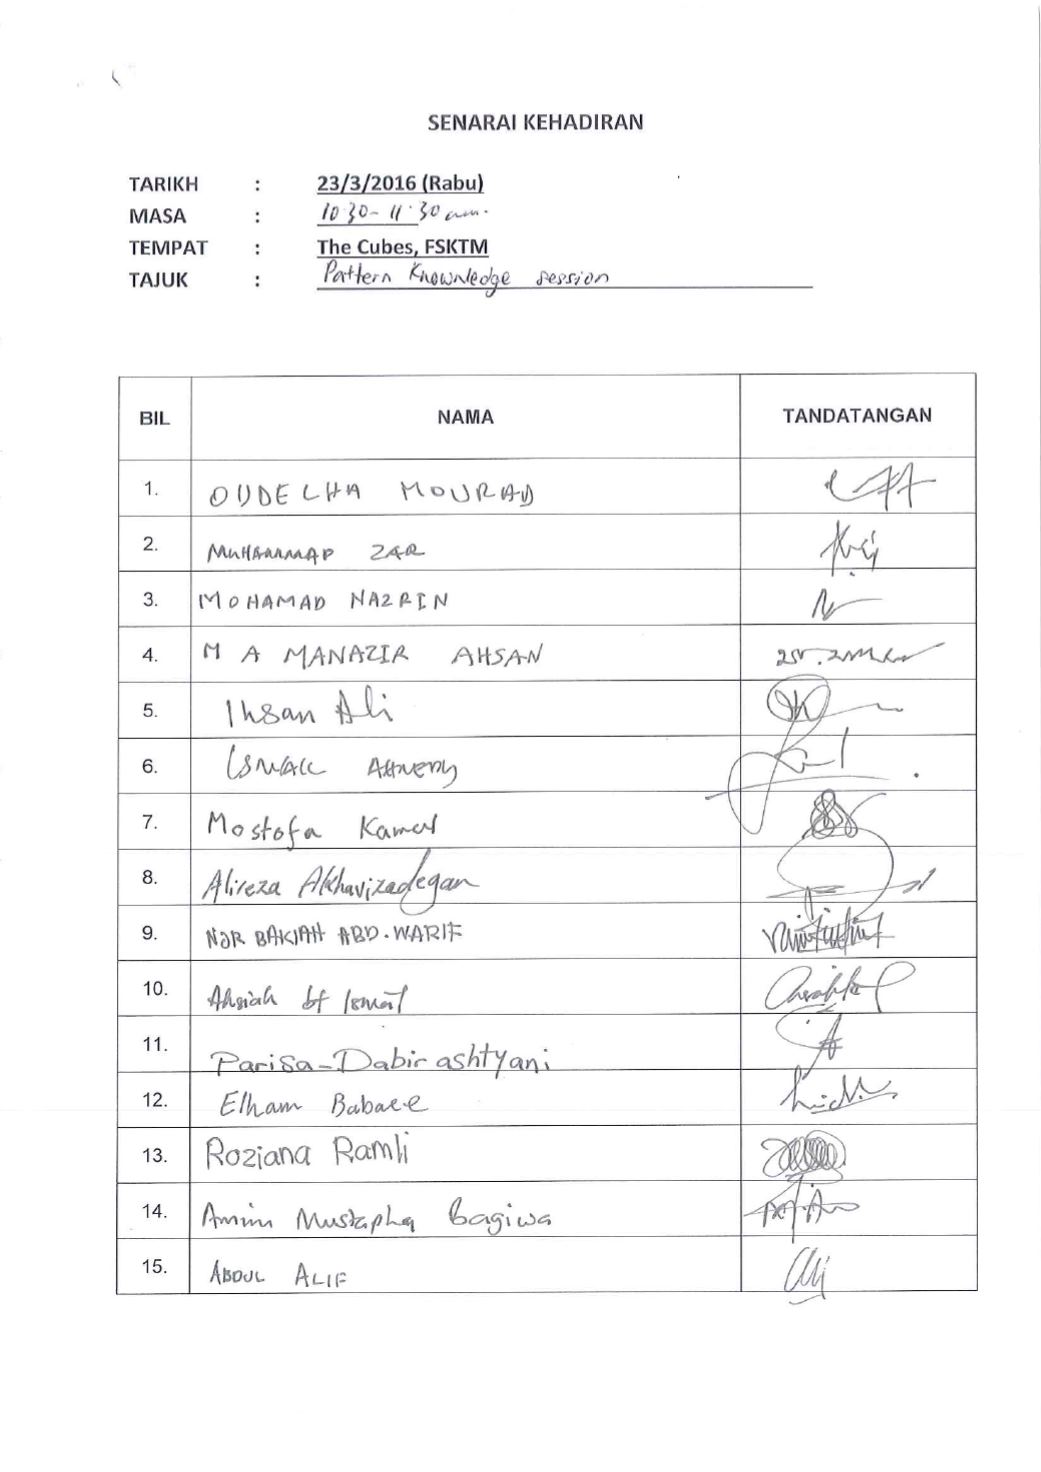 SENARAI KEHADIRAN
TARIKH : 23/3/2016 (Rabu)
MASA : 10.30 - 11.30 am.
TEMPAT : The Cubes, FSKTM
TAJUK : Pattern Knowledge session
BIL NAMA TANDATANGAN
1. OUDELHA MOURAD
2. MUHAMMAD ZAR
3. MOHAMAD NAZRIN
4. M A MANAZIR AHSAN
5. Ihsan Ali
6. ISMAIL AHMEDY
7. Mostofa Kamal
8. Alireza Akhavizadegan
9. NOR BAKIAH ABD. WARIF
10. bt Ismail
11. Parisa-Dabirashtyani
12. Elham Babaee
13. Roziana Ramli
14. Amin Mustapha Bagiwa
15. ABDUL ALIF